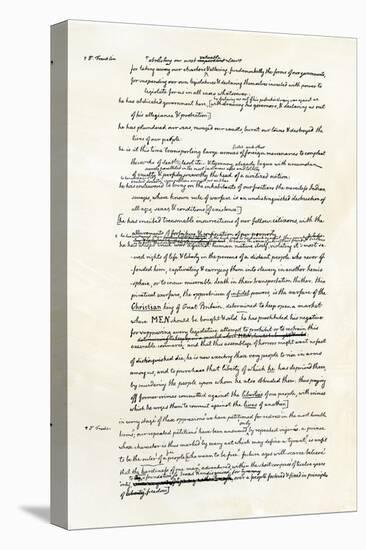 abolishing our most valuable important laws
for taking away our charters & altering fundamentally the forms of our governments,
for suspending our own legislatures & declaring themselves invested with power to
legislate for us in all cases whatsoever:
he has abdicated government here,
of his allegiance & protection
he has plundered our seas, ravaged our coasts, burnt our towns & destroyed the
lives of our people:
he is at this time transporting large armies of foreign mercenaries to compleat
the works of death
of cruelty & perfidy unworthy the head of a civilized nation:
he has endeavored to bring on the inhabitants of our frontiers the merciless Indian
savages, whose known rule of warfare is an undistinguished destruction of
all ages, sexes, & conditions
he has incited treasonable insurrections of our fellow citizens, with the
allurements of forfeiture & confiscation of our property:
he has waged cruel war against human nature itself, violating it's most sa-
-cred rights of life & liberty in the persons of a distant people who never of-
fended him, captivating & carrying them into slavery in another hemi-
sphere, or to incur miserable death in their transportation thither. this
piratical warfare, the opprobrium of infidel powers, is the warfare of the
Christian king of Great Britain. determined to keep open a market
where MEN should be bought & sold, he has prostituted his negative
for suppressing every legislative attempt to prohibit or to restrain this
execrable commerce and that this assemblage of horrors might want no fact
of distinguished die, he is now exciting those very people to rise in arms
among us, and to purchase that liberty of which he has deprived them,
by murdering the people upon whom he also obtruded them; thus paying
off former crimes committed against the liberties of one people, with crimes
which he urges them to commit against the lives of another.
in every stage of these oppressions we have petitioned for redress in the most humble
terms; our repeated petitions have been answered by repeated injuries. a prince
whose character is thus marked by every act which may define a tyrant, is unfit
to be the ruler of a people who mean to be free. future ages will scarce believe
that the hardiness of one man, adventured within the short compass of twelve years
over a people fostered & fixed in principles
of freedom